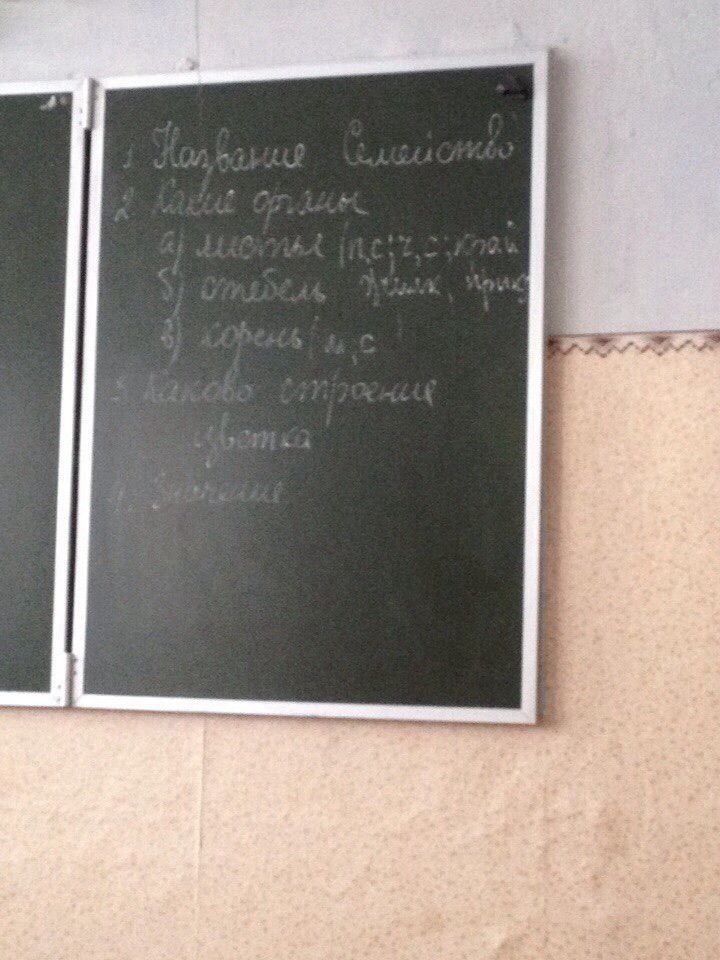 1 Название Семейство
2 Какие органы
а) листья (п,с; ч, с; край
б) стебель
в) корень (м,с)
3 Каково строение
цветка
4. Значение